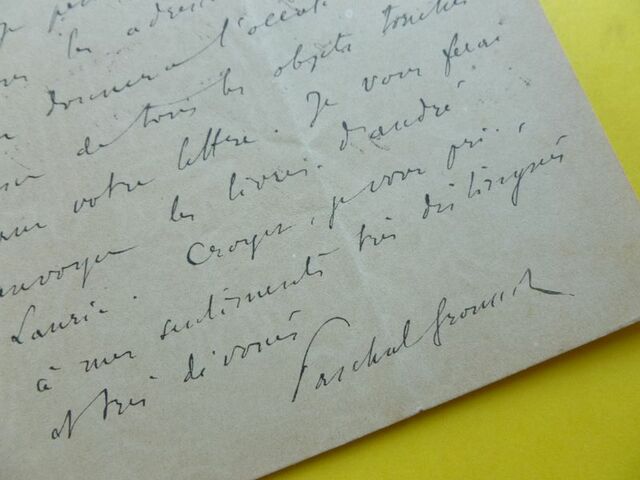 je
les adresse
donnera l'occas
de tous les objets touchés
votre lettre. Je vous ferai
envoyer les livres d'André
Laurie. Croyez, je vous prie,
à mes sentiments très distingués
et très dévoués
Paschal Grousset